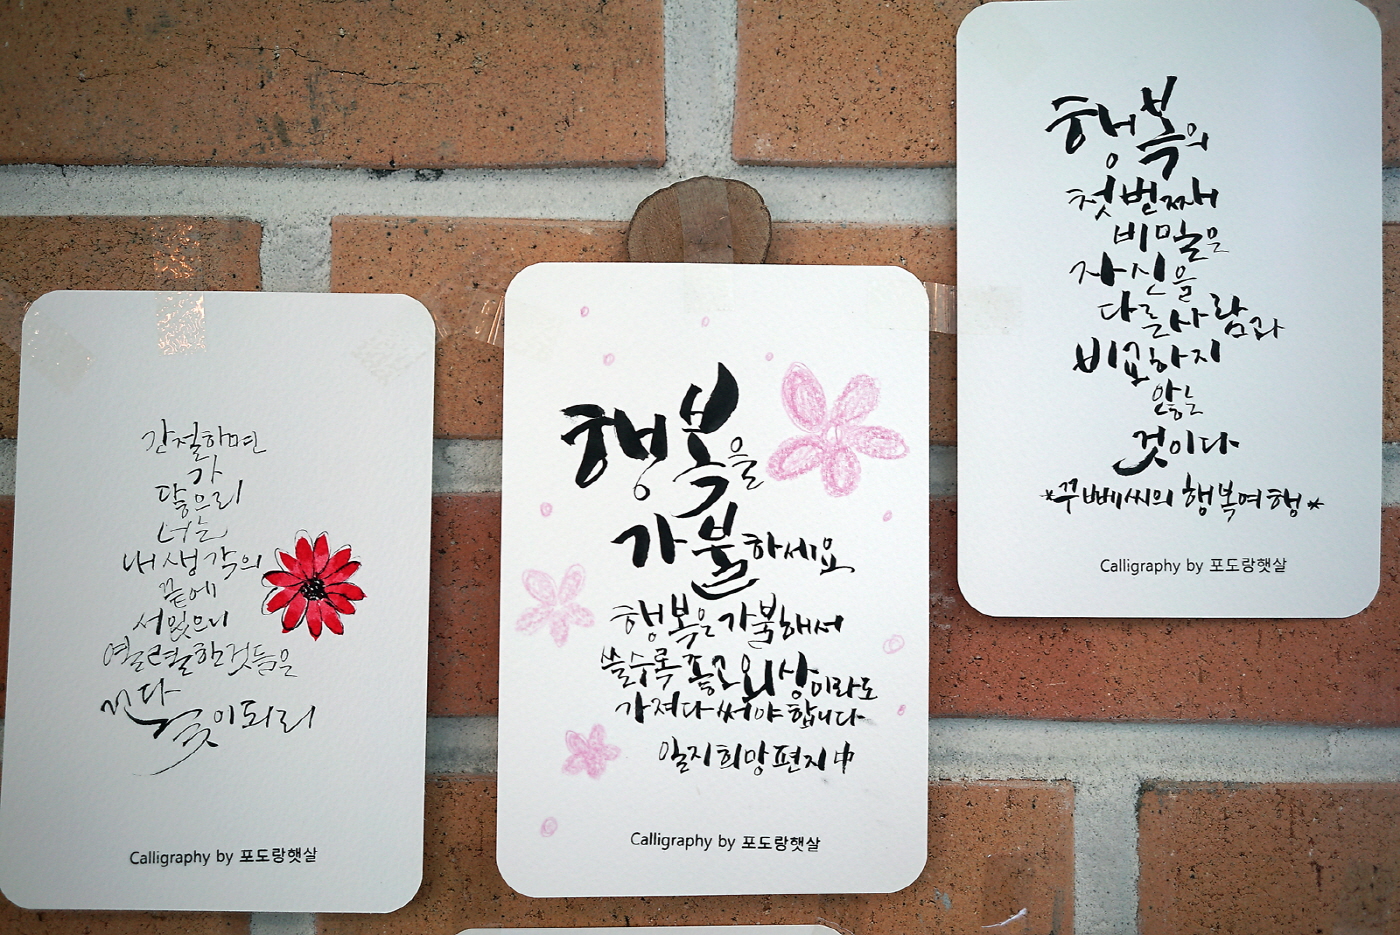 간절하면
가
닿으리
너는
내 생각의
끝에
서있으니
열렬한것들은
다
꽃이되리
Calligraphy by 포도랑햇살
행복을
가불하세요
행복은 가불해서
쓸수록 좋고 외상이라도
가져다 써야 합니다
일지희망편지 中
Calligraphy by 포도랑햇살
행복의
첫번째
비밀은
자신을
다른사람과
비교하지
않는
것이다
*꾸뻬씨의 행복여행*
Calligraphy by 포도랑햇살